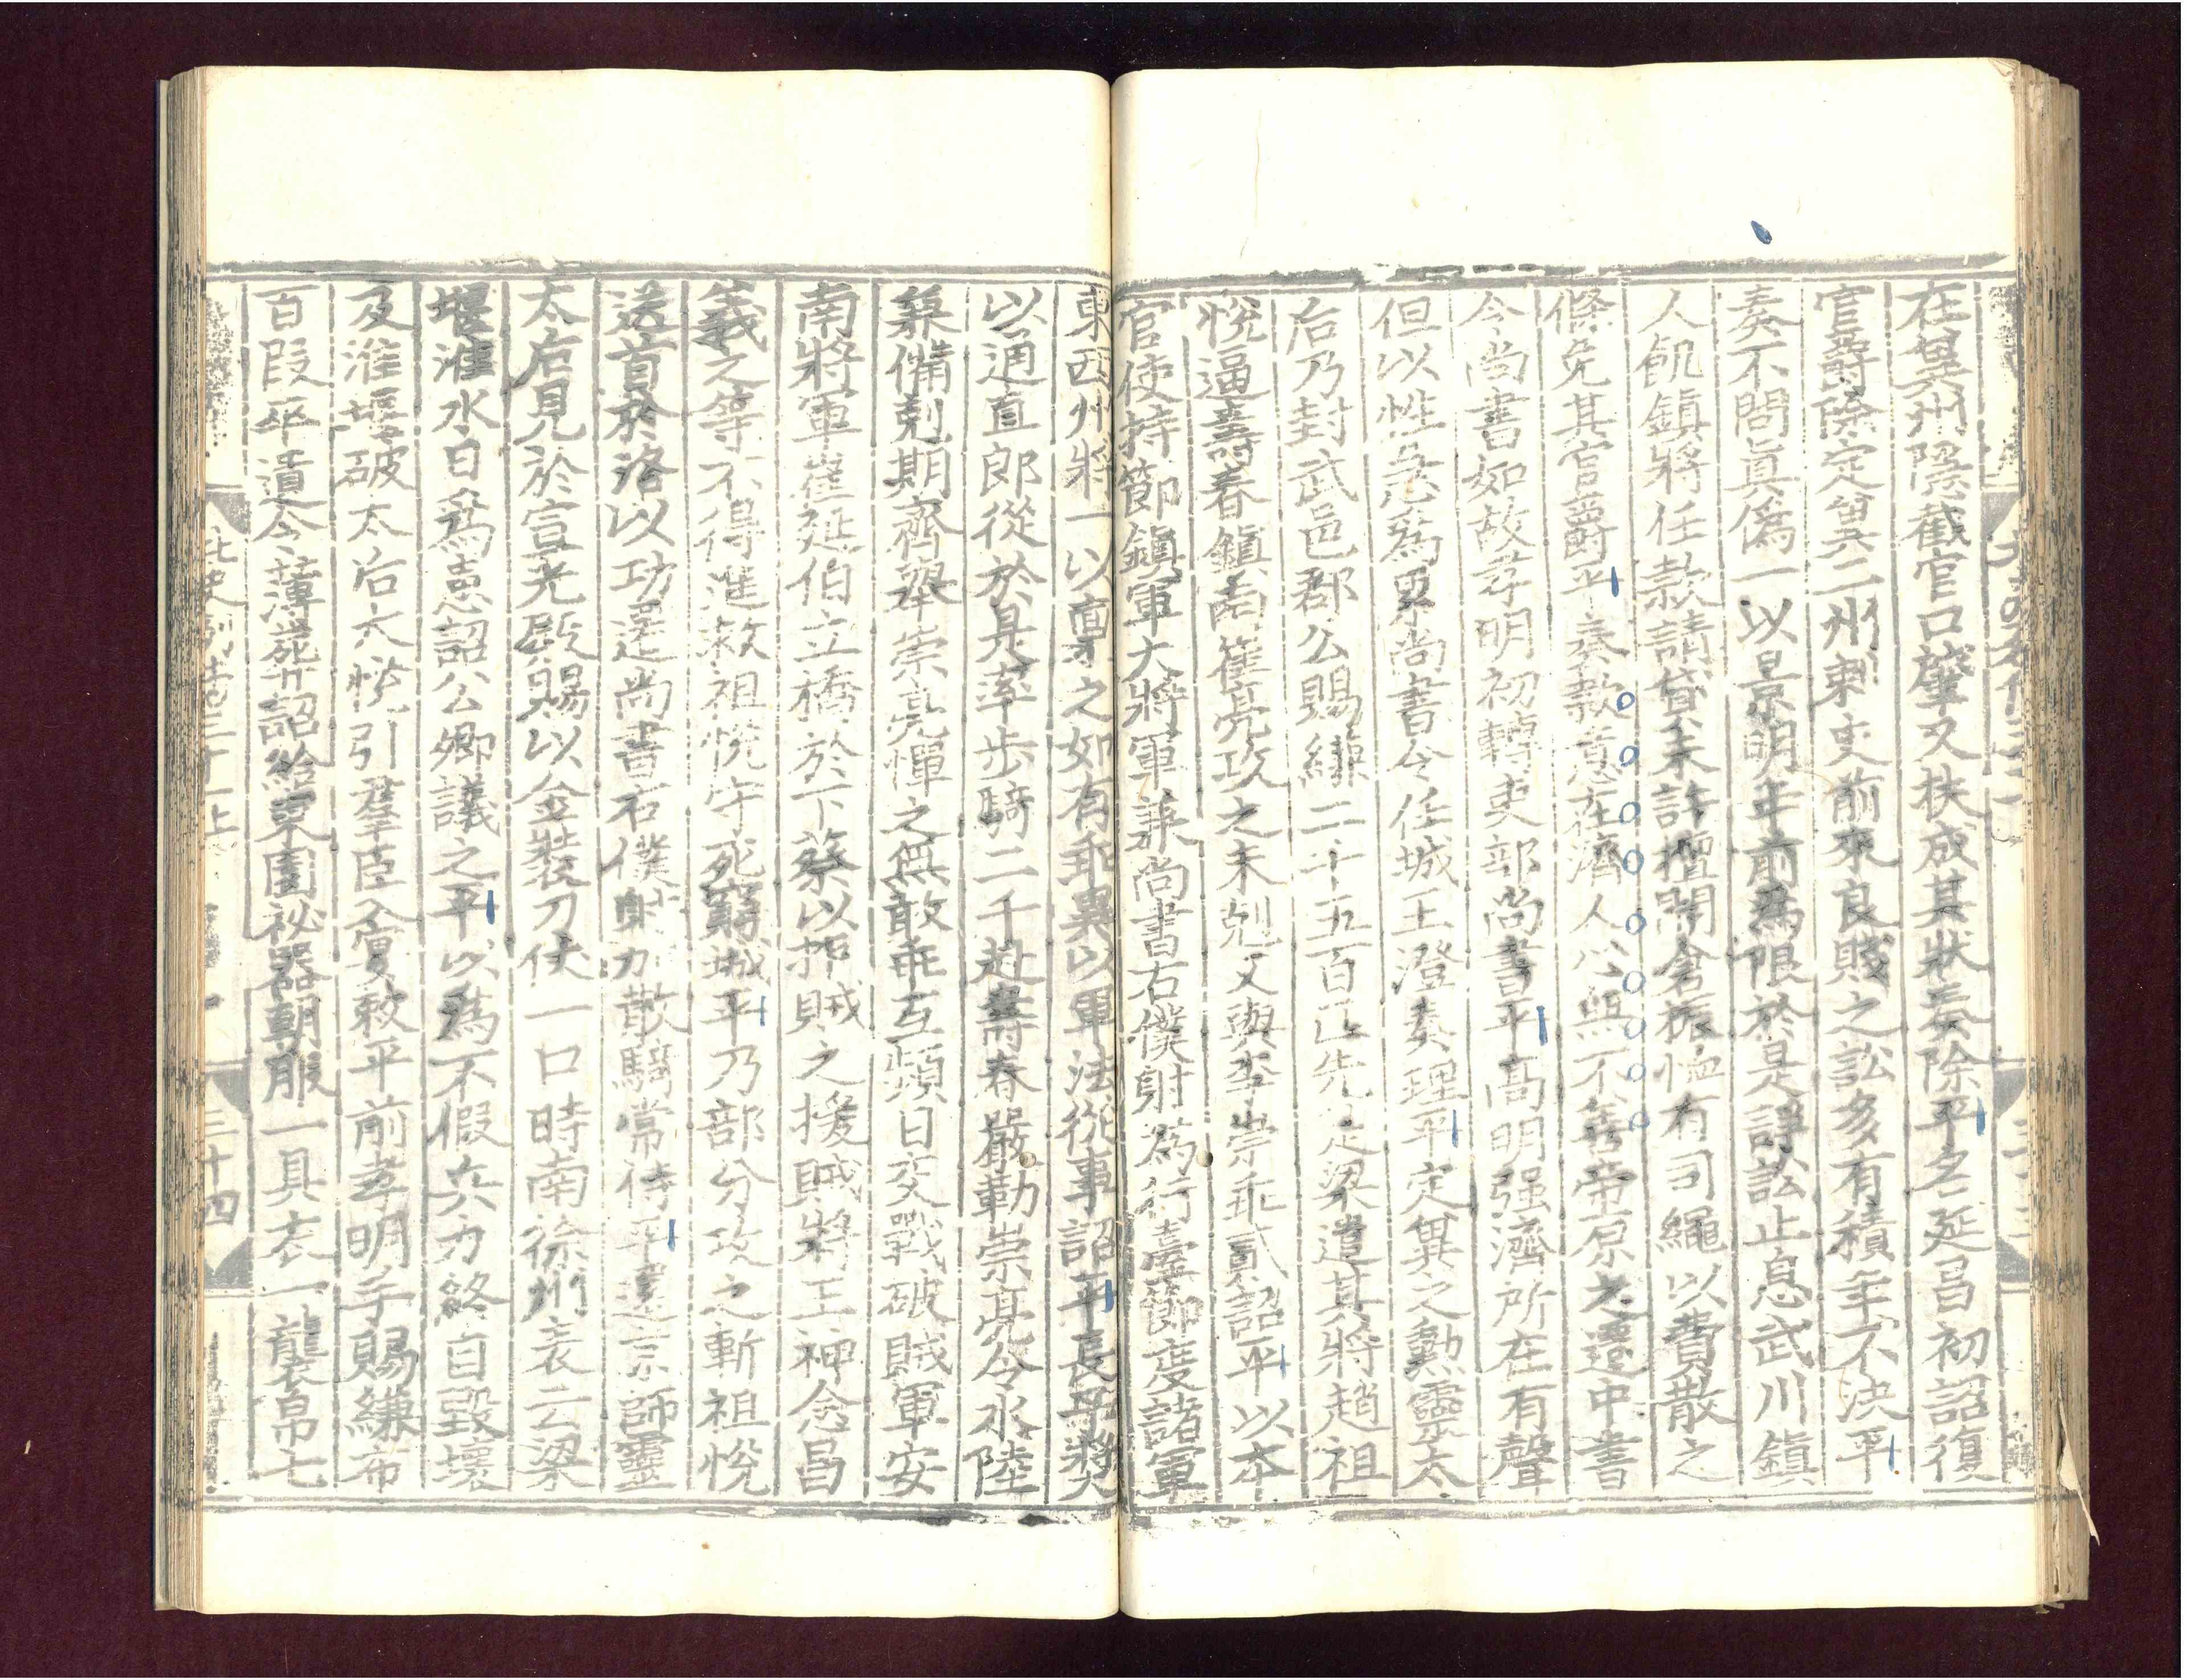 在冀州隱截官口肇又扶成其狀奏除平名延昌初詔復
官爵除定冀二州刺史前來良賤之訟多有積年不決平
奏不問眞僞一以景明年前爲限於是諍訟止息武川鎮
人飢鎮將任款請貸未許擅開倉振恤有司繩以費散之
條免其官爵平奏款意在濟人心無不善帝原之遷中書
令尚書如故孝明初轉吏部尚書平高明强濟所在有聲
但以性急爲累尚書令任城王澄奏理平定冀之勳靈太
后乃封武邑郡公賜縑二千五百疋先是梁遣其將趙祖
悅逼壽春鎮南崔亮攻之未剋又與李崇乖貳詔平以本
官使持節鎮軍大將軍兼尚書右僕射爲行臺節度諸軍
東西州將一以稟之如有乖異以軍法從事詔平長子奬
以通直郎從於是率步騎二千赴壽春嚴勒崇亮令水陸
兼備剋期齊舉崇亮憚之無敢乖互頻日交戰破賊軍安
南將軍崔延伯立橋於下蔡以拒賊之援賊將王神念昌
義之等不得進救祖悅守死窮城平乃部分攻之斬祖悅
送首於洛以功遷尚書右僕射加散騎常侍平還京師靈
太后見於宣光殿賜以金裝刀伏一口時南徐州表云梁
堰淮水日爲患詔公卿議之平以爲不假兵力終自毀壞
及淮堰破太后大悅引羣臣入宴敕平前孝明手賜縑布
百段卒遺令薄葬詔給東園祕器朝服一具衣一襲帛七
北史列傳三十一上
三十四